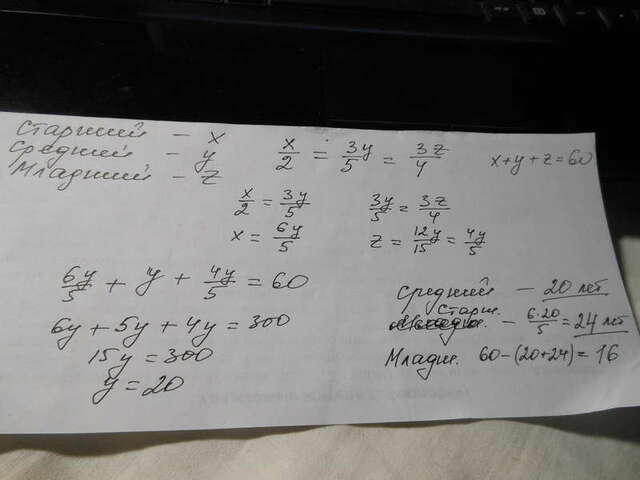 Старший – x
Средний – y
Младший – z
x/2 = 3y/5 = 3z/4
x+y+z=60
x/2 = 3y/5
3y/5 = 3z/4
x = 6y/5
z = 12y/15 = 4y/5
6y/5 + y + 4y/5 = 60
6y + 5y + 4y = 300
15y = 300
y = 20
Средний – 20 лет
Старш. – 6·20/5 = 24 лет
Младш. 60–(20+24)=16